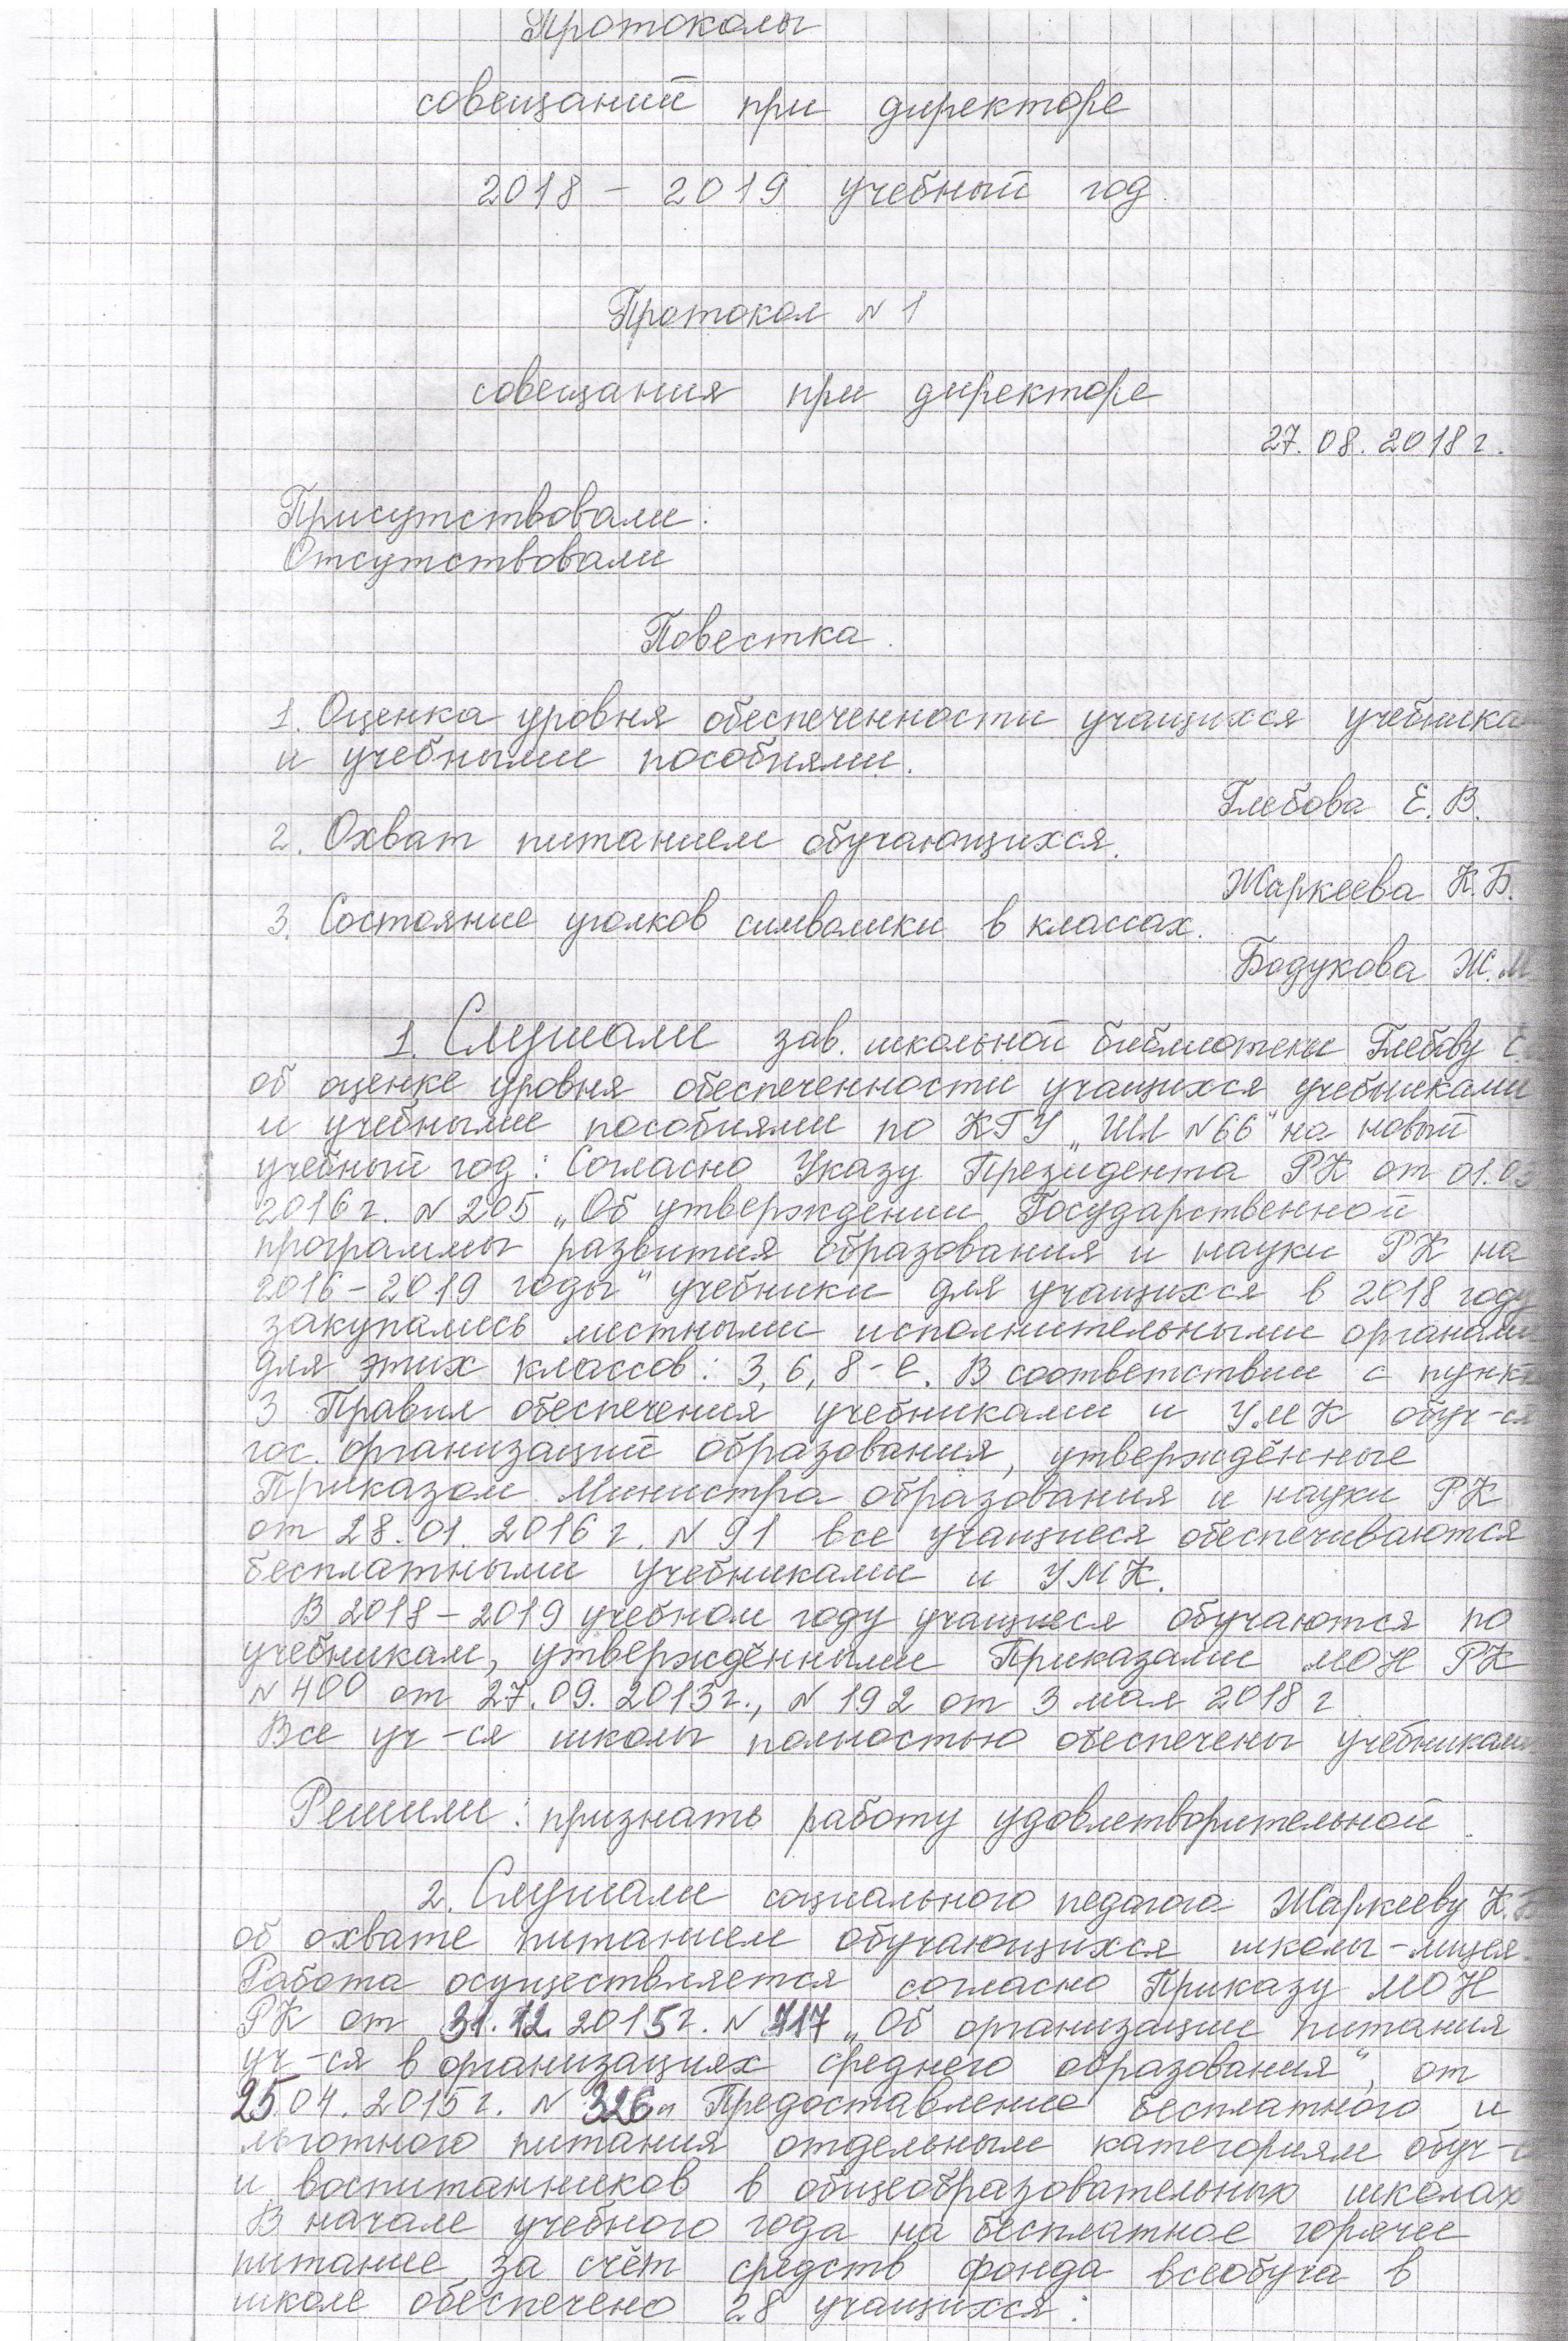 Протоколы
совещаний при директоре
2018 – 2019 учебный год
Протокол № 1
совещания при директоре
27.08.2018 г.
Присутствовали:
Отсутствовали
Повестка.
1. Оценка уровня обеспеченности учащихся учебника
и учебными пособиями.
Глебова Е. В.
2. Охват питанием обучающихся.
Жаркеева К. Б.
3. Состояние уголков символики в классах.
Бодукова Ж. М
1. Слушали зав. школьной библиотеки Глебову Е.
об оценке уровня обеспеченности учащихся учебниками
и учебными пособиями по КГУ „ШЛ №66" на новый
учебный год: Согласно Указу Президента РК от 01.03
2016 г. № 205 „Об утверждении Государственной
программы развития образования и науки РК на
2016-2019 годы" учебники для учащихся в 2018 году
закупались местными исполнительными органами
для этих классов: 3, 6, 8-е. В соответствии с пункт
3 Правил обеспечения учебниками и УМК обуч-ся
гос. организаций образования, утверждённые
Приказом Министра образования и науки РК
от 28.01.2016 г. № 91 все учащиеся обеспечиваются
бесплатными учебниками и УМК.
В 2018-2019 учебном году учащиеся обучаются по
учебникам, утверждёнными Приказами МОН РК
№ 400 от 27.09.2013 г., № 192 от 3 мая 2018 г
Все уч-ся школы полностью обеспечены учебниками
Решили: признать работу удовлетворительной.
2. Слушали социального педагога Жаркееву К. Б
об охвате питанием обучающихся школы-лицея.
Работа осуществляется согласно Приказу МОН
РК от 31.12.2015 г. № 717 „Об организации питания
уч-ся в организациях среднего образования", от
25.04.2015 г. № 326 „Предоставление бесплатного и
льготного питания отдельным категориям обуч-с
и воспитанников в общеобразовательных школах
В начале учебного года на бесплатное горячее
питание за счёт средств фонда всеобуча в
школе обеспечено 28 учащихся: